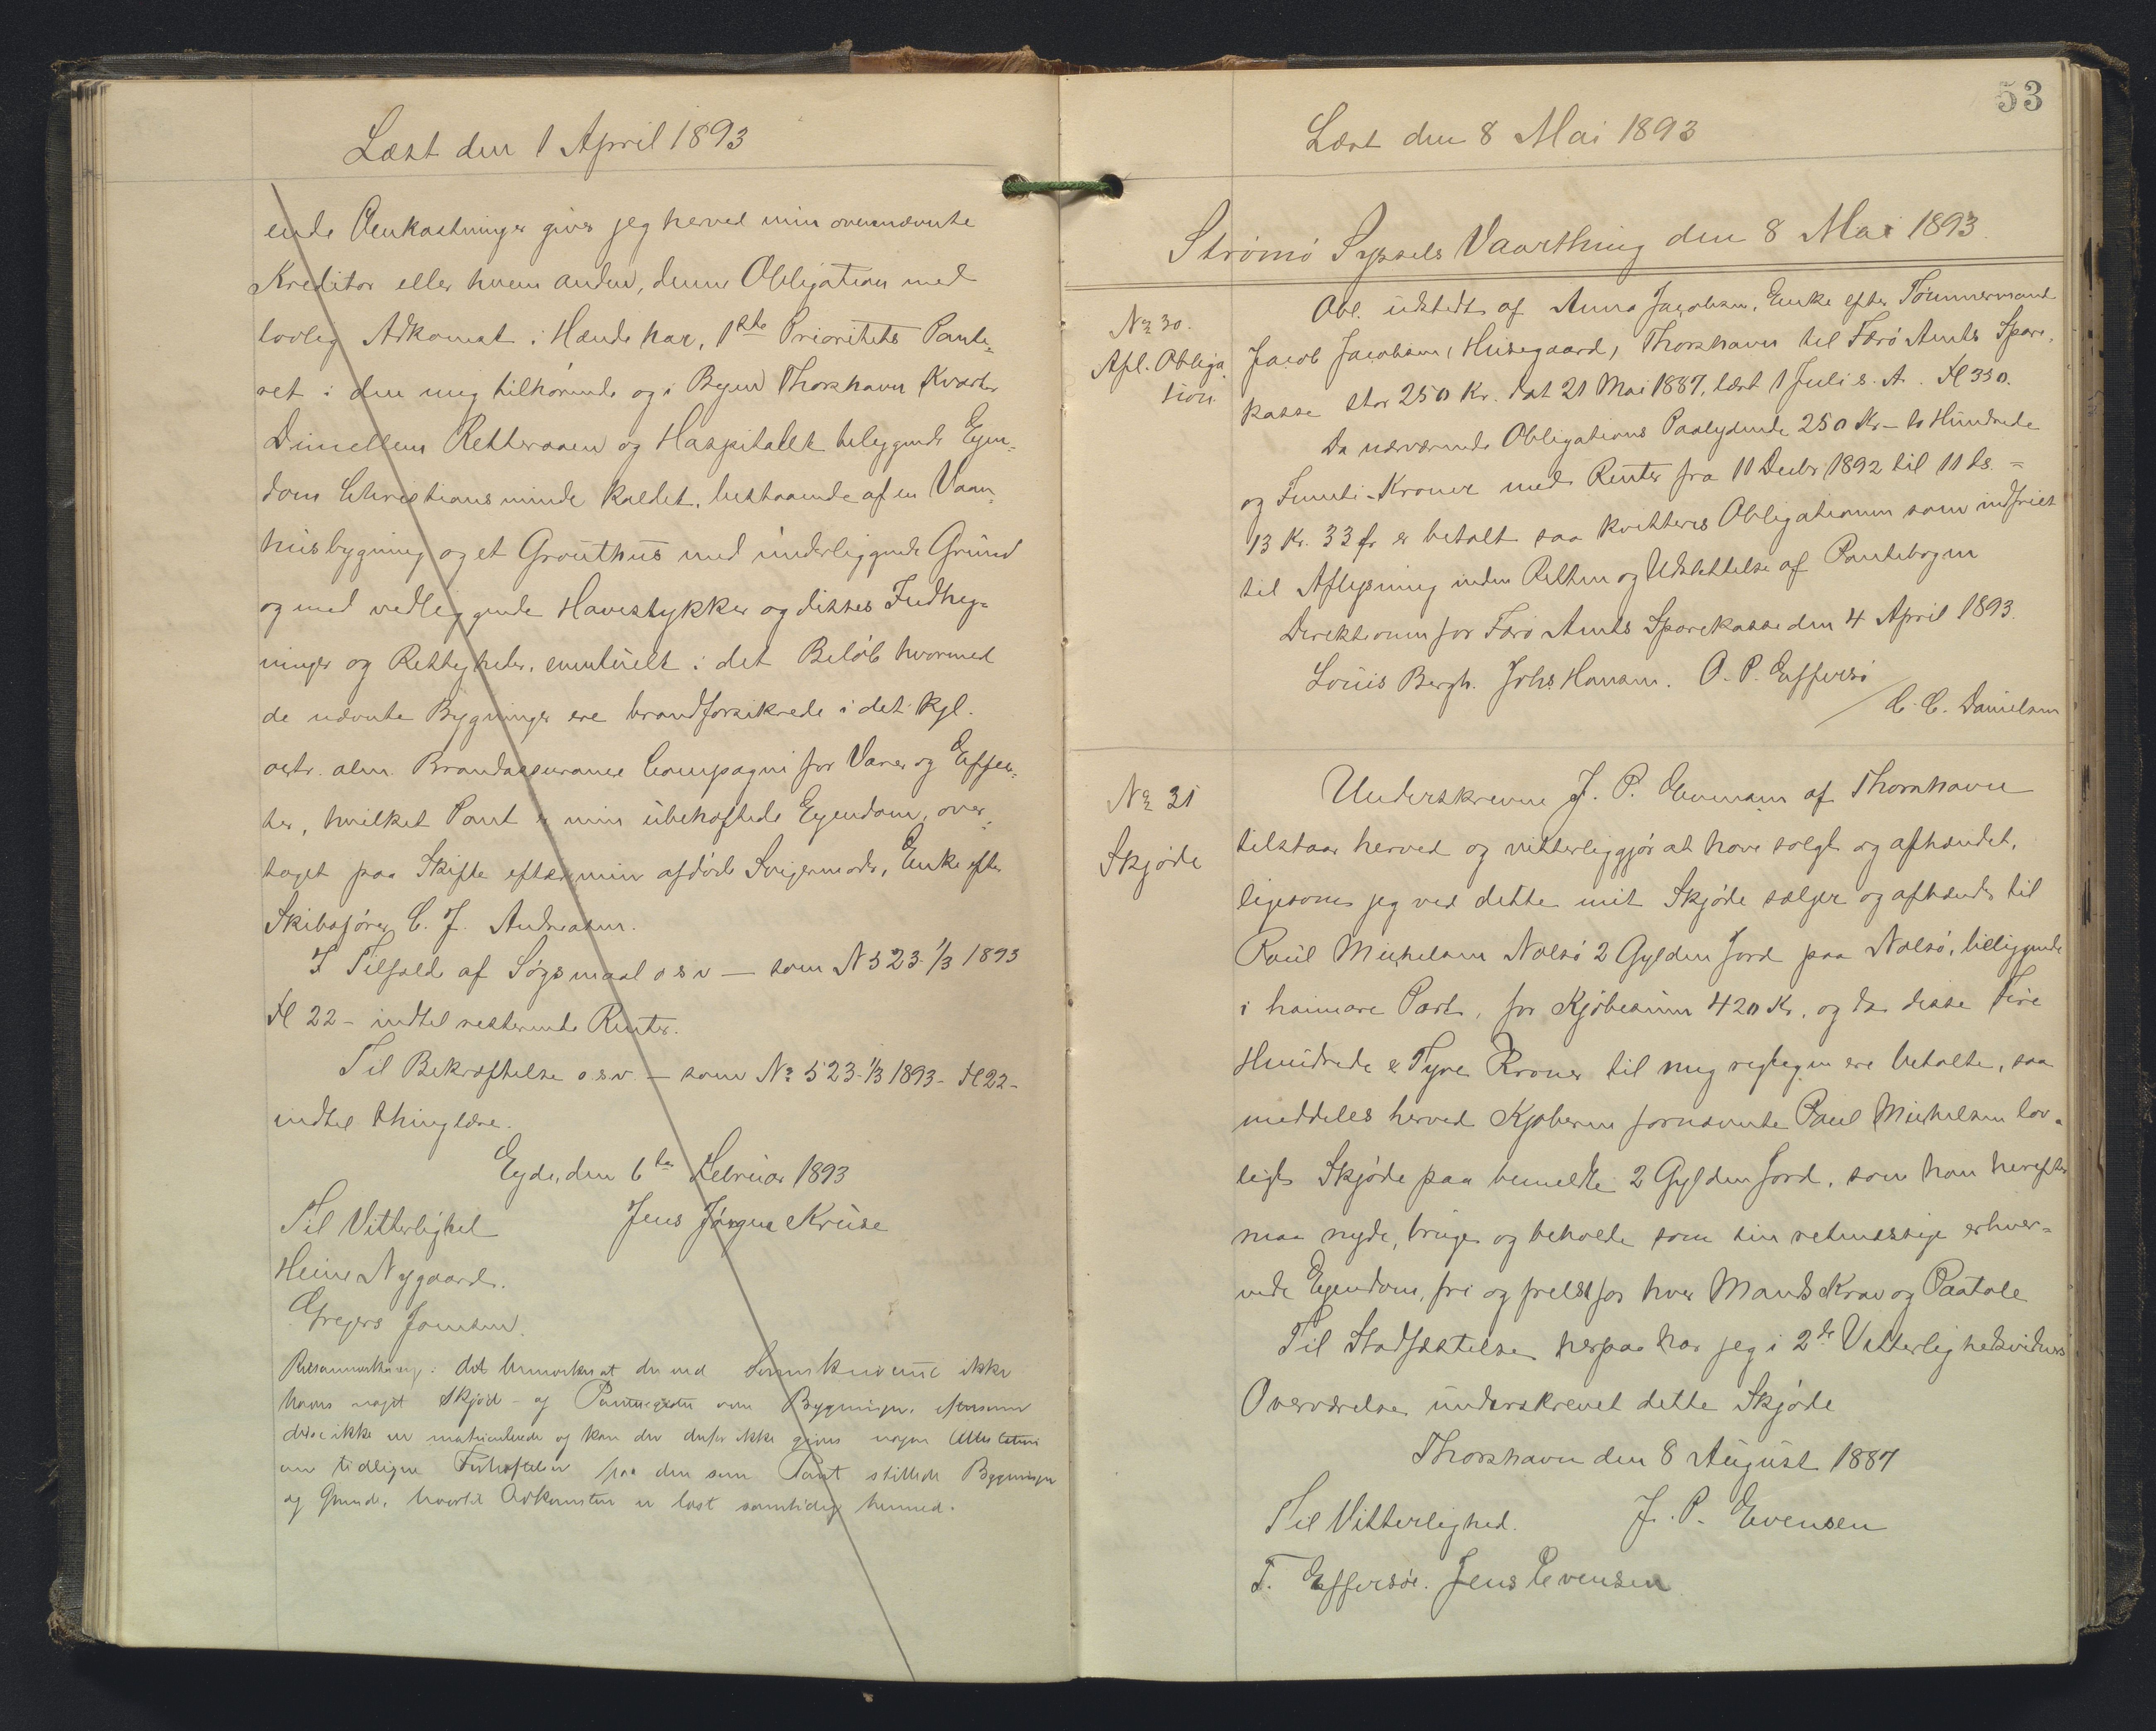 Læst den 1 April 1893
ende Omkostninger giver jeg herved min ovennævnte
Kreditor eller hvem anden, denne Obligation med
lovlig Adkomst i Hænde har, 1ste Prioritets Pante-
ret i den mig tilhørende og i Byen Thorshavn Kvarter
Dimellem Retteraaen og Hospitalet beliggende Ejen-
dom Christiansminde kaldet, bestaaende af en Vaan-
husbygning og et Grouthus med underliggende Grund
og med vedliggende Havestykker og disses Indheg-
ninger og Rettigheder, eventuelt i det Beløb hvormed
de nævnte Bygninger ere brandforsikrede i det Kgl.
octr. alm. Brandassurance Compagni for Varer og Effec-
ter, hvilket Pant er min ubehæftede Ejendom, over-
taget paa Skifte efter min afdøde Svigermoder, Enke efter
Skibsfører C. J. Andreasen.
I Tilfælde af Søgsmaal o s v — som N 523 1/3 1893
Fl 22 - indtil resterende Renter.
Til Bekræftelse o. s. v. — som No 523 - 1/3 1893 - Fl 22 -
indtil thinglæse.
Eyde, den 6te Februar 1893
Til Vitterlighed Jens Jørgen Kruse
Heine Nygaard.
Gregers Joensen.
Retsanmærkning: Det bemærkes at der ved ikke
haves noget Skjøde- og Panteregister over Bygninger, eftersom
disse ikke er matrikulerede og kan der derfor ikke gives nogen
om tidligere Behæftelser paa den som Pant stillede Bygninger
og Grunde, hvortil Adkomsten er læst samtidig hermed.
53
Læst den 8 Mai 1893
Strømø Syssels Vaarthing den 8 Mai 1893
No 30.
Afl. Obliga
tion.
Obl. udstedt af Anna Jacobsen, Enke efter Tømmermand
Jacob Jacobsen (Husegaard) Thorshavn til Færø Amts Spare-
kasse stor 250 Kr. dat 21 Mai 1887, læst 1 Juli s. A. Fl 350.
Da nærværende Obligations Paalydende 250 Kr - to Hundrede
og Femti - Kroner med Renter fra 11 Decbr 1892 til 11 ds. =
13 Kr. 33 Ør er betalt saa kvitteres Obligationen som indfriet
til Aflysning inden Retten og Udslettelse af Pantebogen
Direktionen for Færø Amts Sparekasse den 4 April 1893.
Louis Bergh. Johs Hansen. O. P. Effersø
/ C. C. Danielsen
No 31
Skjøde
Underskrevne J. P. Evensen af Thorshavn
tilstaar herved og vitterliggjør at have solgt og afhændet,
ligesom jeg ved dette mit Skjøde sælger og afhænder til
Poul Michelsen Nolsø 2 Gylden Jord paa Nolsø, beliggende
i haimare Part, for Kjøbesum 420 Kr, og da disse Fire
Hundrede & Tyve Kroner til mig rigtigen ere betalte, saa
meddeles herved Kjøberen fornævnte Poul Michelsen lov-
ligt Skjøde paa bemeldte 2 Gylden Jord, som han herefter
maa nyde, bruge og beholde som sin retmæssige erhver-
vede Ejendom, fri og frelst for hver Mands Krav og Paatale
Til Stadfæstelse herpaa har jeg i 2de Vitterlighedsvidners
Overværelse underskrevet dette Skjøde
Thorshavn den 8 August 1887
Til Vitterlighed. J. P. Evensen
T. Effersøe. Jens Evensen